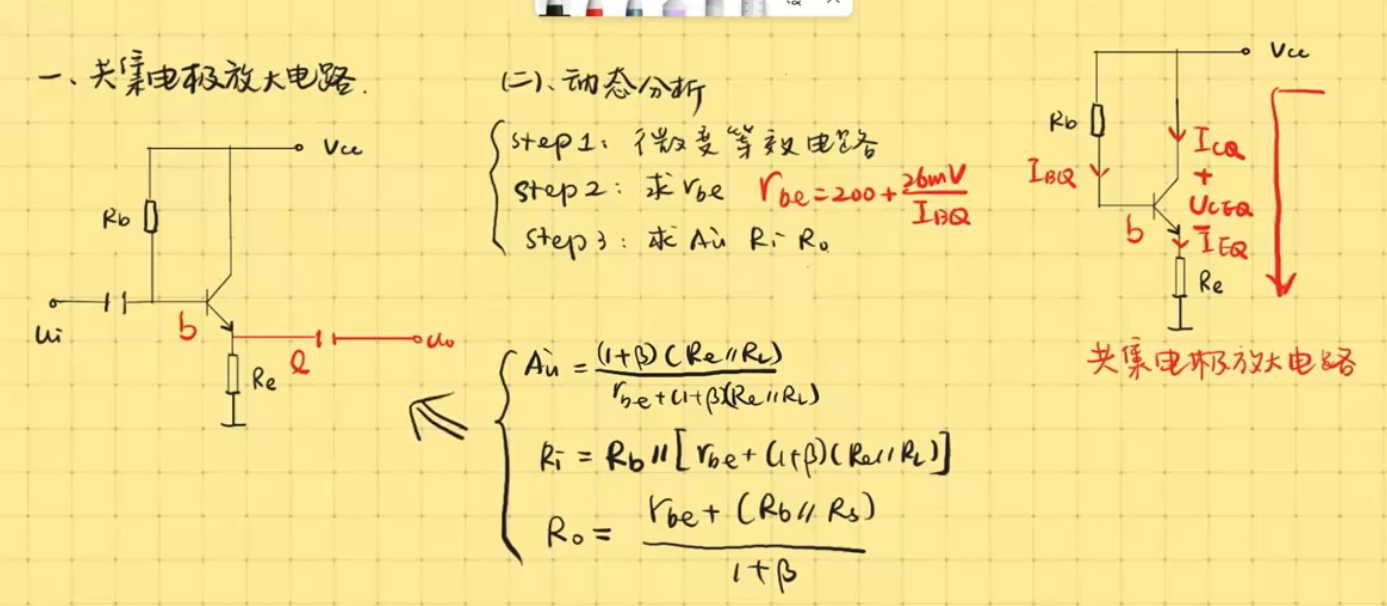 一、共集电极放大电路.
Vcc
Rb
Ui
b
e
Uo
Re
(二)、动态分析
step1: 微变等效电路
step2: 求 rbe rbe=200+26mV/IBQ
step3: 求 Au Ri Ro
Au = (1+β)(Re//RL)/rbe+(1+β)(Re//RL)
Ri = Rb//[rbe+(1+β)(Re//RL)]
Ro = rbe+(Rb//Rs)/1+β
Vcc
Rb
IBQ
ICQ
+
UCEQ
-
b
IEQ
Re
共集电极放大电路